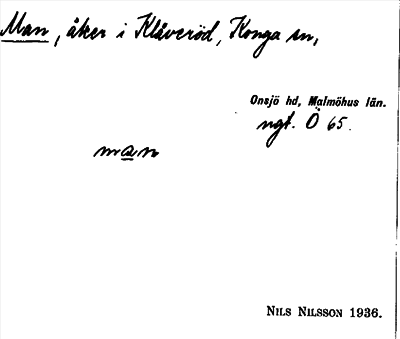 Man, åker i Klåveröd, Konga sn,
Onsjö hd, Malmöhus län.
ngt. Ö 65.
man
NILS NILSSON 1936.